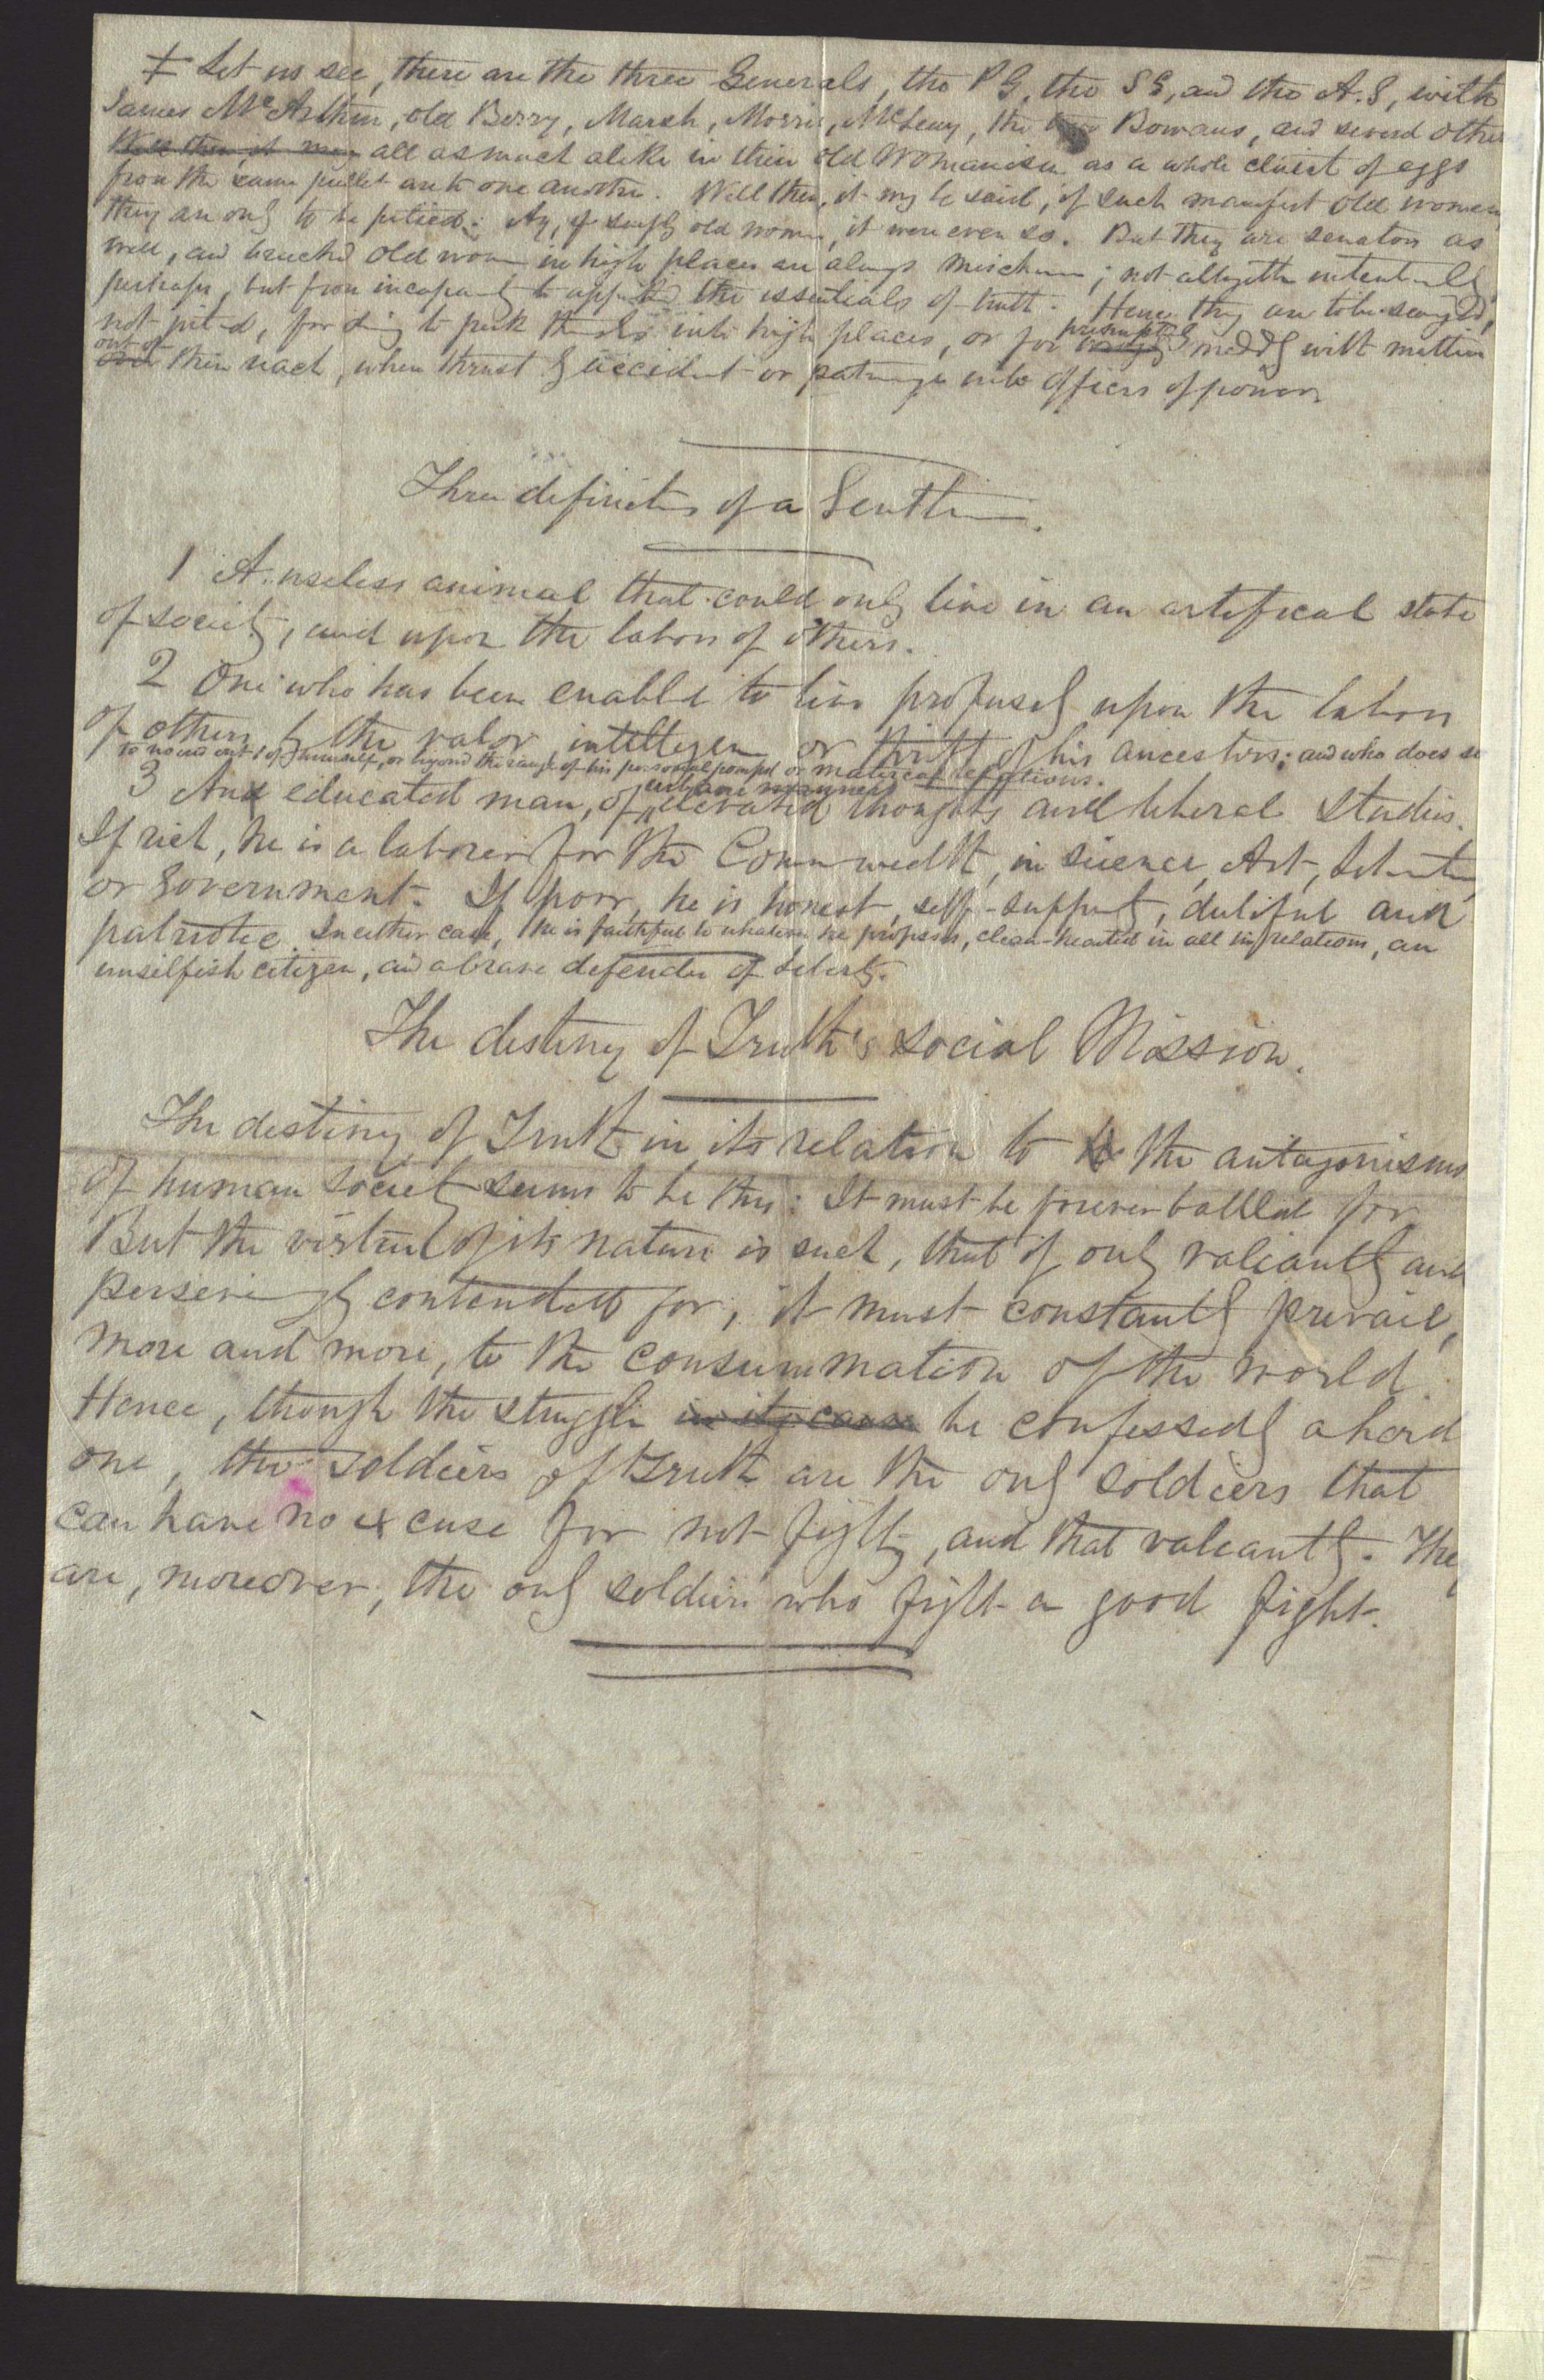 ‡ Let us see, there are the three Generals, the P G, the S G, and the A. G, with
James McArthur, old Berry, Marsh, Morris, the Bowans, and several other
Well then, it may all as much alike in their old womanism as a whole of eggs
from the same pullet are to one another. Well then, it may be said, if such manifest old women
they are only to be pitied. Ay, if simply old women, it were even so. But they are senators as
well, and old women in high places are always ; not altogether intentionally
perhaps, but from incapacity to the essentials of truth. Hence they are to be
not pitied, for to into high places, or for presumptuously with matters
out of their reach, when thrust by accident or patronage into offices of power
Three definitions of a Gentleman.
1 A useless animal that could only live in an artifical state
of society, and upon the labors of others.
2 One who has been enabled to live profusely upon the labors
of others, by the valor, intelligence or thrift of his ancestors; and who does so
to no end out of himself, or beyond the range of his personal or
urbane manners
3 An educated man, of elevated thoughts and liberal studies.
If rich, he is a laborer for the Commonwealth, in science, Art, Literature,
or Government. If poor, he is honest, self-supporting, dutiful and
patriotic. In either case, he is faithful to whatever he professes, clean-hearted in all his relations, an
unselfish citizen, and a brave defender of Liberty.
The destiny of Truth's social Mission.
The destiny of Truth in its relation to the antagonisms
of human society seems to be this: It must be forever battled for
But the virtue of its nature is such, that if only valiantly and
perseveringly contended for, it must constantly prevail,
more and more, to the consummation of the world.
Hence, though the struggle in its cause be confessedly a hard
one, the soldiers of Truth are the only soldiers that
can have no excuse for not fighting, and that valiantly. They
are, moreover, the only soldiers who fight a good fight.